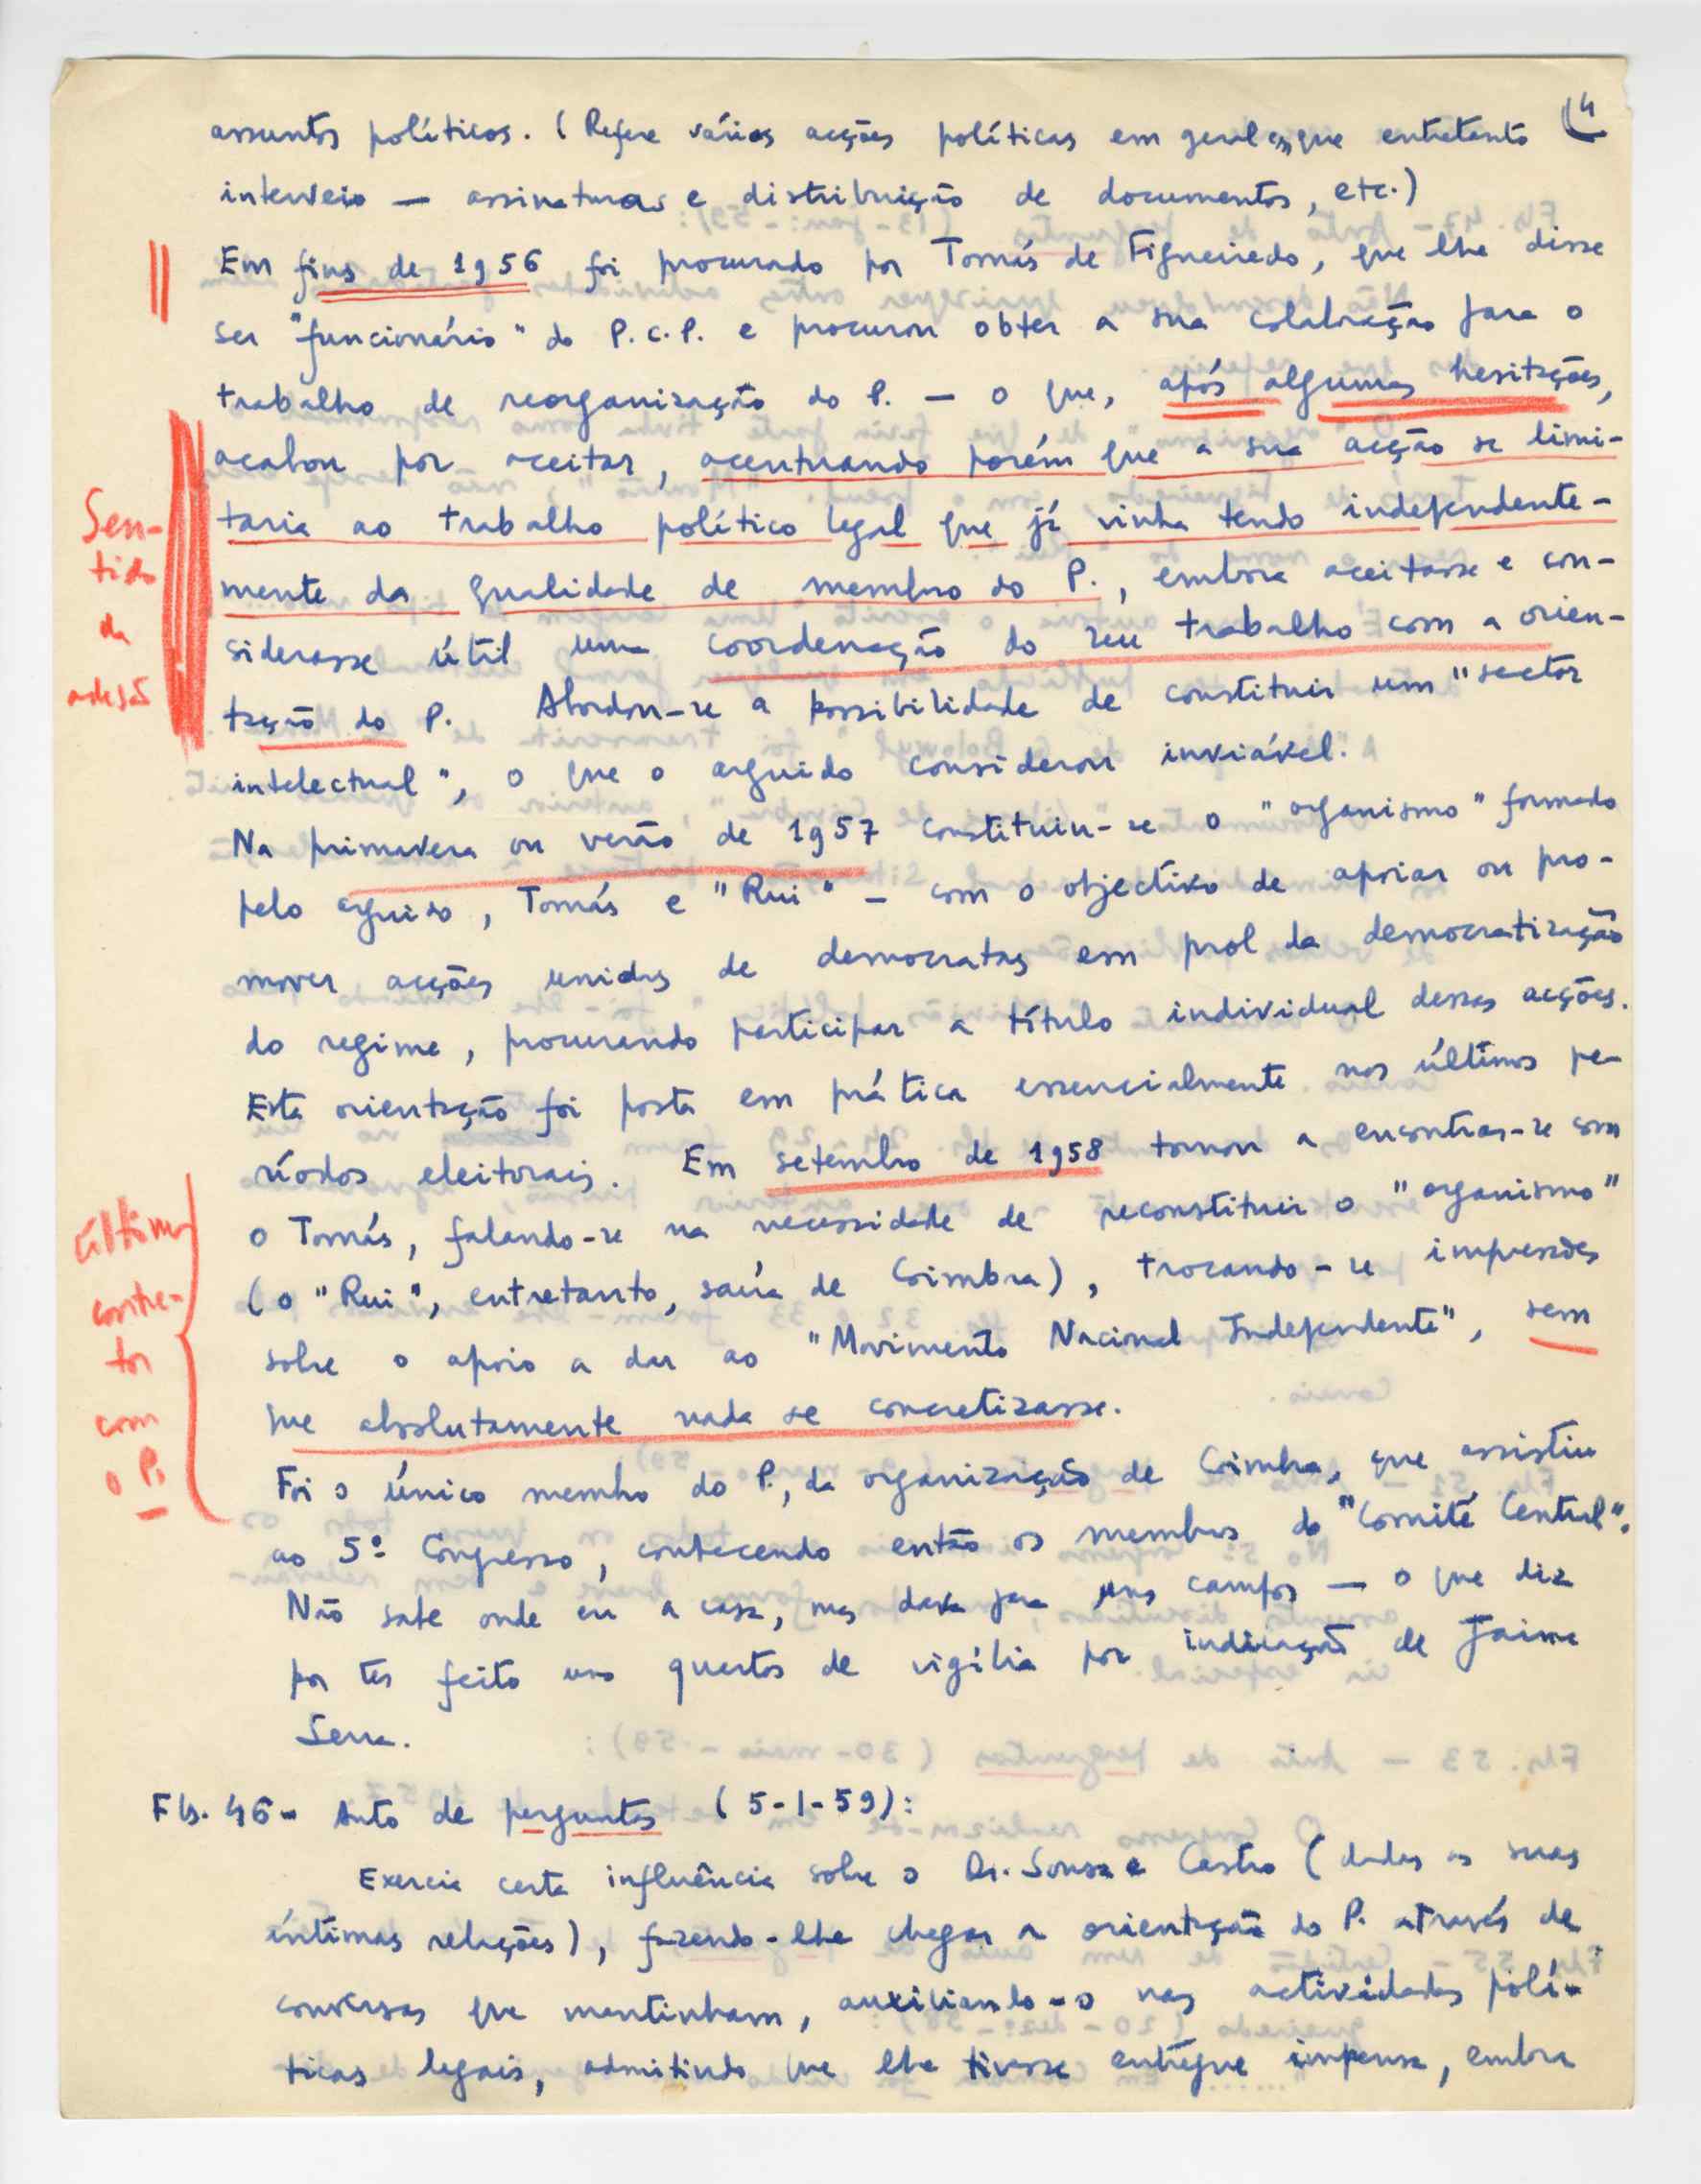 4
assuntos políticos. (Refere várias acções políticas em geral em que entretanto
interveio — assinaturas e distribuição de documentos, etc.)
Em fins de 1956 foi procurado por Tomás de Figueiredo, que lhe disse
ser "funcionário" do P.C.P. e procurou obter a sua colaboração para o
trabalho de reorganização do P. — o que, após algumas hesitações,
acabou por aceitar, acentuando porém que a sua acção se limi-
taria ao trabalho político legal que já vinha tendo independente-
mente da qualidade de membro do P., embora aceitasse e con-
siderasse útil uma coordenação do seu trabalho com a orien-
tação do P. Abordou-se a possibilidade de constituir um "sector
intelectual", o que o arguido considerou inviável.
Sen-
tido
da
adesão
Na primavera ou verão de 1957 constituiu-se o "organismo" formado
pelo arguido, Tomás e "Rui" — com o objectivo de apoiar ou pro-
mover acções unidas de democratas em prol da democratização
do regime, procurando participar a título individual dessas acções.
Esta orientação foi posta em prática essencialmente nos últimos pe-
ríodos eleitorais. Em setembro de 1958 tornou a encontrar-se com
o Tomás, falando-se na necessidade de reconstituir o "organismo"
(o "Rui", entretanto, saíra de Coimbra), trocando-se impressões
sobre o apoio a dar ao "Movimento Nacional Independente", sem
que absolutamente nada se concretizasse.
últimos
contac-
tos
com
o P.
Foi o único membro do P., da organização de Coimbra, que assistiu
ao 5º Congresso, conhecendo então os membros do "Comité Central".
Não sabe onde era a casa, mas dava para uns campos — o que diz
por ter feito uns quartos de vigília por indicação de Jaime
Serra.
Fls. 46 - Auto de perguntas (5-1-59):
Exercia certa influência sobre o Dr. Sousa e Castro (dadas as suas
íntimas relações), fazendo-lhe chegar a orientação do P. através de
conversas que mantinham, auxiliando-o nas actividades polí-
ticas legais, admitindo que lhe tivesse entregue imprensa, embora